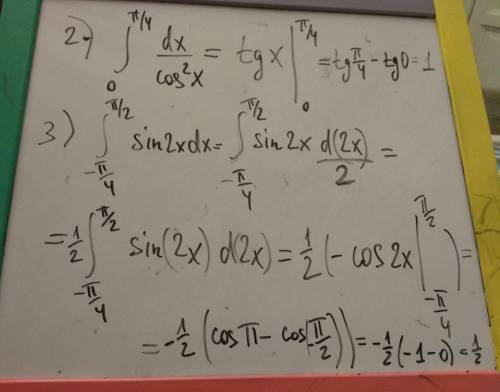 2) ∫₀^{π/4} dx/cos²x = tgx |₀^{π/4} = tg π/4 - tg0 = 1
3) ∫_{-π/4}^{π/2} sin2xdx = ∫_{-π/4}^{π/2} sin2x d(2x)/2 =
= 1/2 ∫_{-π/4}^{π/2} sin(2x) d(2x) = 1/2 (- cos2x |_{-π/4}^{π/2}) =
= -1/2 (cosπ - cos(-π/2)) = -1/2 (-1-0) = 1/2